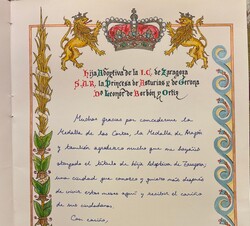 Hija Adoptiva de la I.C. de Zaragoza
S.A.R. la Princesa de Asturias y de Gerona
Dª Leonor de Borbón y Ortiz
Muchas gracias por concederme la
Medalla de las Cortes, la Medalla de Aragón
y también agradezco mucho que me hayáis
otorgado el título de Hija Adoptiva de Zaragoza,
una ciudad que conozco y quiero más después
de vivir estos meses aquí y recibir el cariño
de sus ciudadanos.
Con cariño,